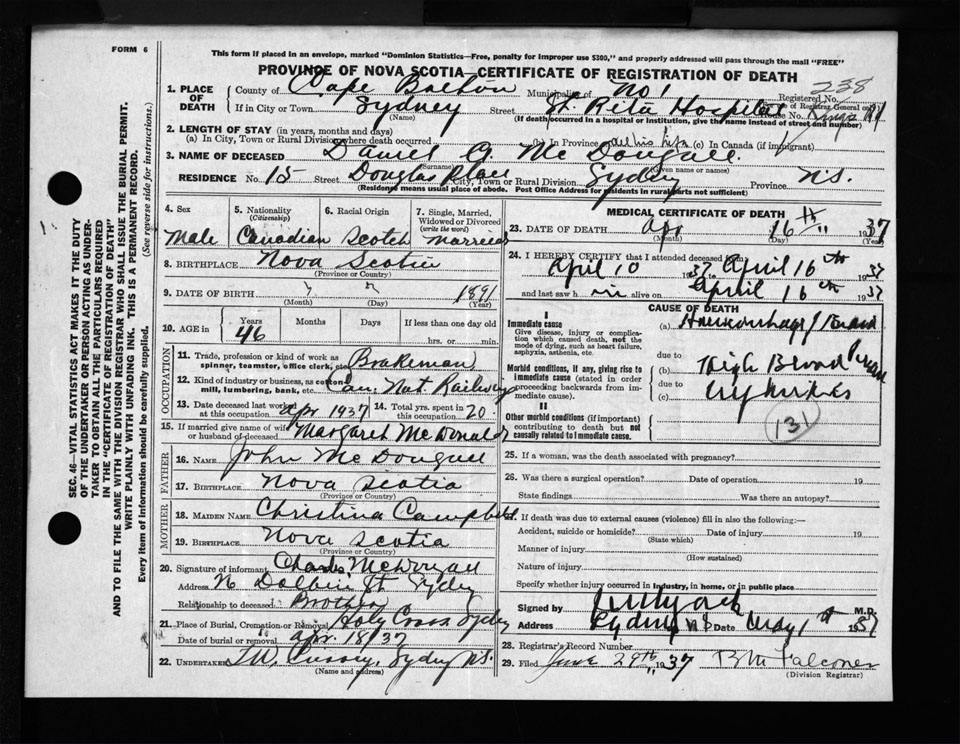 FORM 6
This form if placed in an envelope, marked "Dominion Statistics—Free, penalty for improper use $300," and properly addressed will pass through the mail "FREE"
PROVINCE OF NOVA SCOTIA—CERTIFICATE OF REGISTRATION OF DEATH
SEC. 46—VITAL STATISTICS ACT MAKES IT THE DUTY
OF THE UNDERTAKER OR PERSON ACTING AS UNDER-
TAKER TO OBTAIN ALL THE PARTICULARS REQUIRED
IN THE "CERTIFICATE OF REGISTRATION OF DEATH"
AND TO FILE THE SAME WITH THE DIVISION REGISTRAR WHO SHALL ISSUE THE BURIAL PERMIT.
WRITE PLAINLY WITH UNFADING INK. THIS IS A PERMANENT RECORD.
Every item of information should be carefully supplied. (See reverse side for instructions.)
1. PLACE OF DEATH County of Cape Breton Municipality of No 1 Registered No. 238
If in City or Town Sydney (Name) Street St. Rita Hospital House No. Kings Rd
(If death occurred in a hospital or institution, give the name instead of street and number)
2. LENGTH OF STAY (in years, months and days)
(a) In City, Town or Rural Division where death occurred (b) In Province all his life (c) In Canada (if immigrant)
3. NAME OF DECEASED Daniel G. McDougall
(Surname) (Given name or names)
RESIDENCE No. 15 Street Douglas Place City, Town or Rural Division Sydney Province N.S.
(Residence means usual place of abode. Post Office Address for residents in rural parts not sufficient)
4. Sex Male
5. Nationality (Citizenship) Canadian
6. Racial Origin Scotch
7. Single, Married, Widowed or Divorced (write the word) Married
8. BIRTHPLACE Nova Scotia
(Province or Country)
9. DATE OF BIRTH ? ? 1891
(Month) (Day) (Year)
10. AGE in Years 46 Months Days If less than one day old hrs. or min.
OCCUPATION
11. Trade, profession or kind of work as spinner, teamster, office clerk, etc. Brakeman
12. Kind of industry or business, as cotton mill, lumbering, bank, etc. Can. Nat Railway
13. Date deceased last worked at this occupation Apr 1937 14. Total yrs. spent in this occupation 20
15. If married give name of wife or husband of deceased Margaret McDonald
FATHER
16. NAME John McDougall
17. BIRTHPLACE Nova Scotia
(Province or Country)
MOTHER
18. MAIDEN NAME Christina Campbell
19. BIRTHPLACE Nova Scotia
(Province or Country)
20. Signature of informant Charles McDougall
Address N Dolbin St Sydney
Relationship to deceased Brother
21. Place of Burial, Cremation or Removal Holy Cross Sydney
Date of burial or removal Apr. 18/37
22. UNDERTAKER T.W. Curry, Sydney N.S.
(Name and address)
MEDICAL CERTIFICATE OF DEATH
23. DATE OF DEATH Apr 16th 1937
(Month) (Day) (Year)
24. I HEREBY CERTIFY that I attended deceased from
April 10 1937 to April 16th 1937
and last saw him alive on April 16th 1937
CAUSE OF DEATH
I
Immediate cause
Give disease, injury or complication which caused death, not the mode of dying, such as heart failure, asphyxia, asthenia, etc.
(a) Haemorrhage / Brain
due to
Morbid conditions, if any, giving rise to immediate cause (stated in order proceeding backwards from immediate cause).
(b) High Blood Pressure
due to
(c) Nephritis
II
Other morbid conditions (if important) contributing to death but not causally related to immediate cause.
131
25. If a woman, was the death associated with pregnancy?
26. Was there a surgical operation? Date of operation 19
State findings Was there an autopsy?
27. If death was due to external causes (violence) fill in also the following:—
Accident, suicide or homicide? Date of injury 19
(State which)
Manner of injury
(How sustained)
Nature of injury
Specify whether injury occurred in industry, in home, or in public place
Signed by M.D.
Address Sydney N S Date May 1st 1937
28. Registrar's Record Number
29. Filed June 29th 1937 B M Falconer
(Division Registrar)